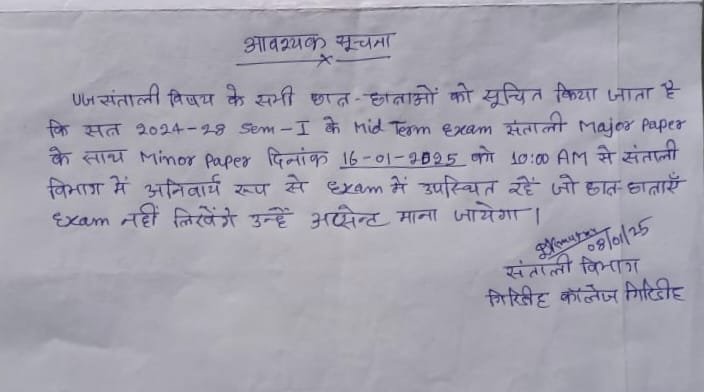 आवश्यक सूचना
UG संताली विषय के सभी छात्र-छात्राओं को सूचित किया जाता है
कि सत्र 2024-28 Sem-I के Mid Term Exam संताली Major Paper
के साथ Minor Paper दिनांक 16-01-2025 को 10:00 AM से संताली
विभाग में अनिवार्य रूप से Exam में उपस्थित रहें जो छात्र-छात्राएँ
Exam नहीं लिखेंगे उन्हें अप्सेन्ट माना जायेगा।
08/01/25
संताली विभाग
गिरिडीह कॉलेज गिरिडीह